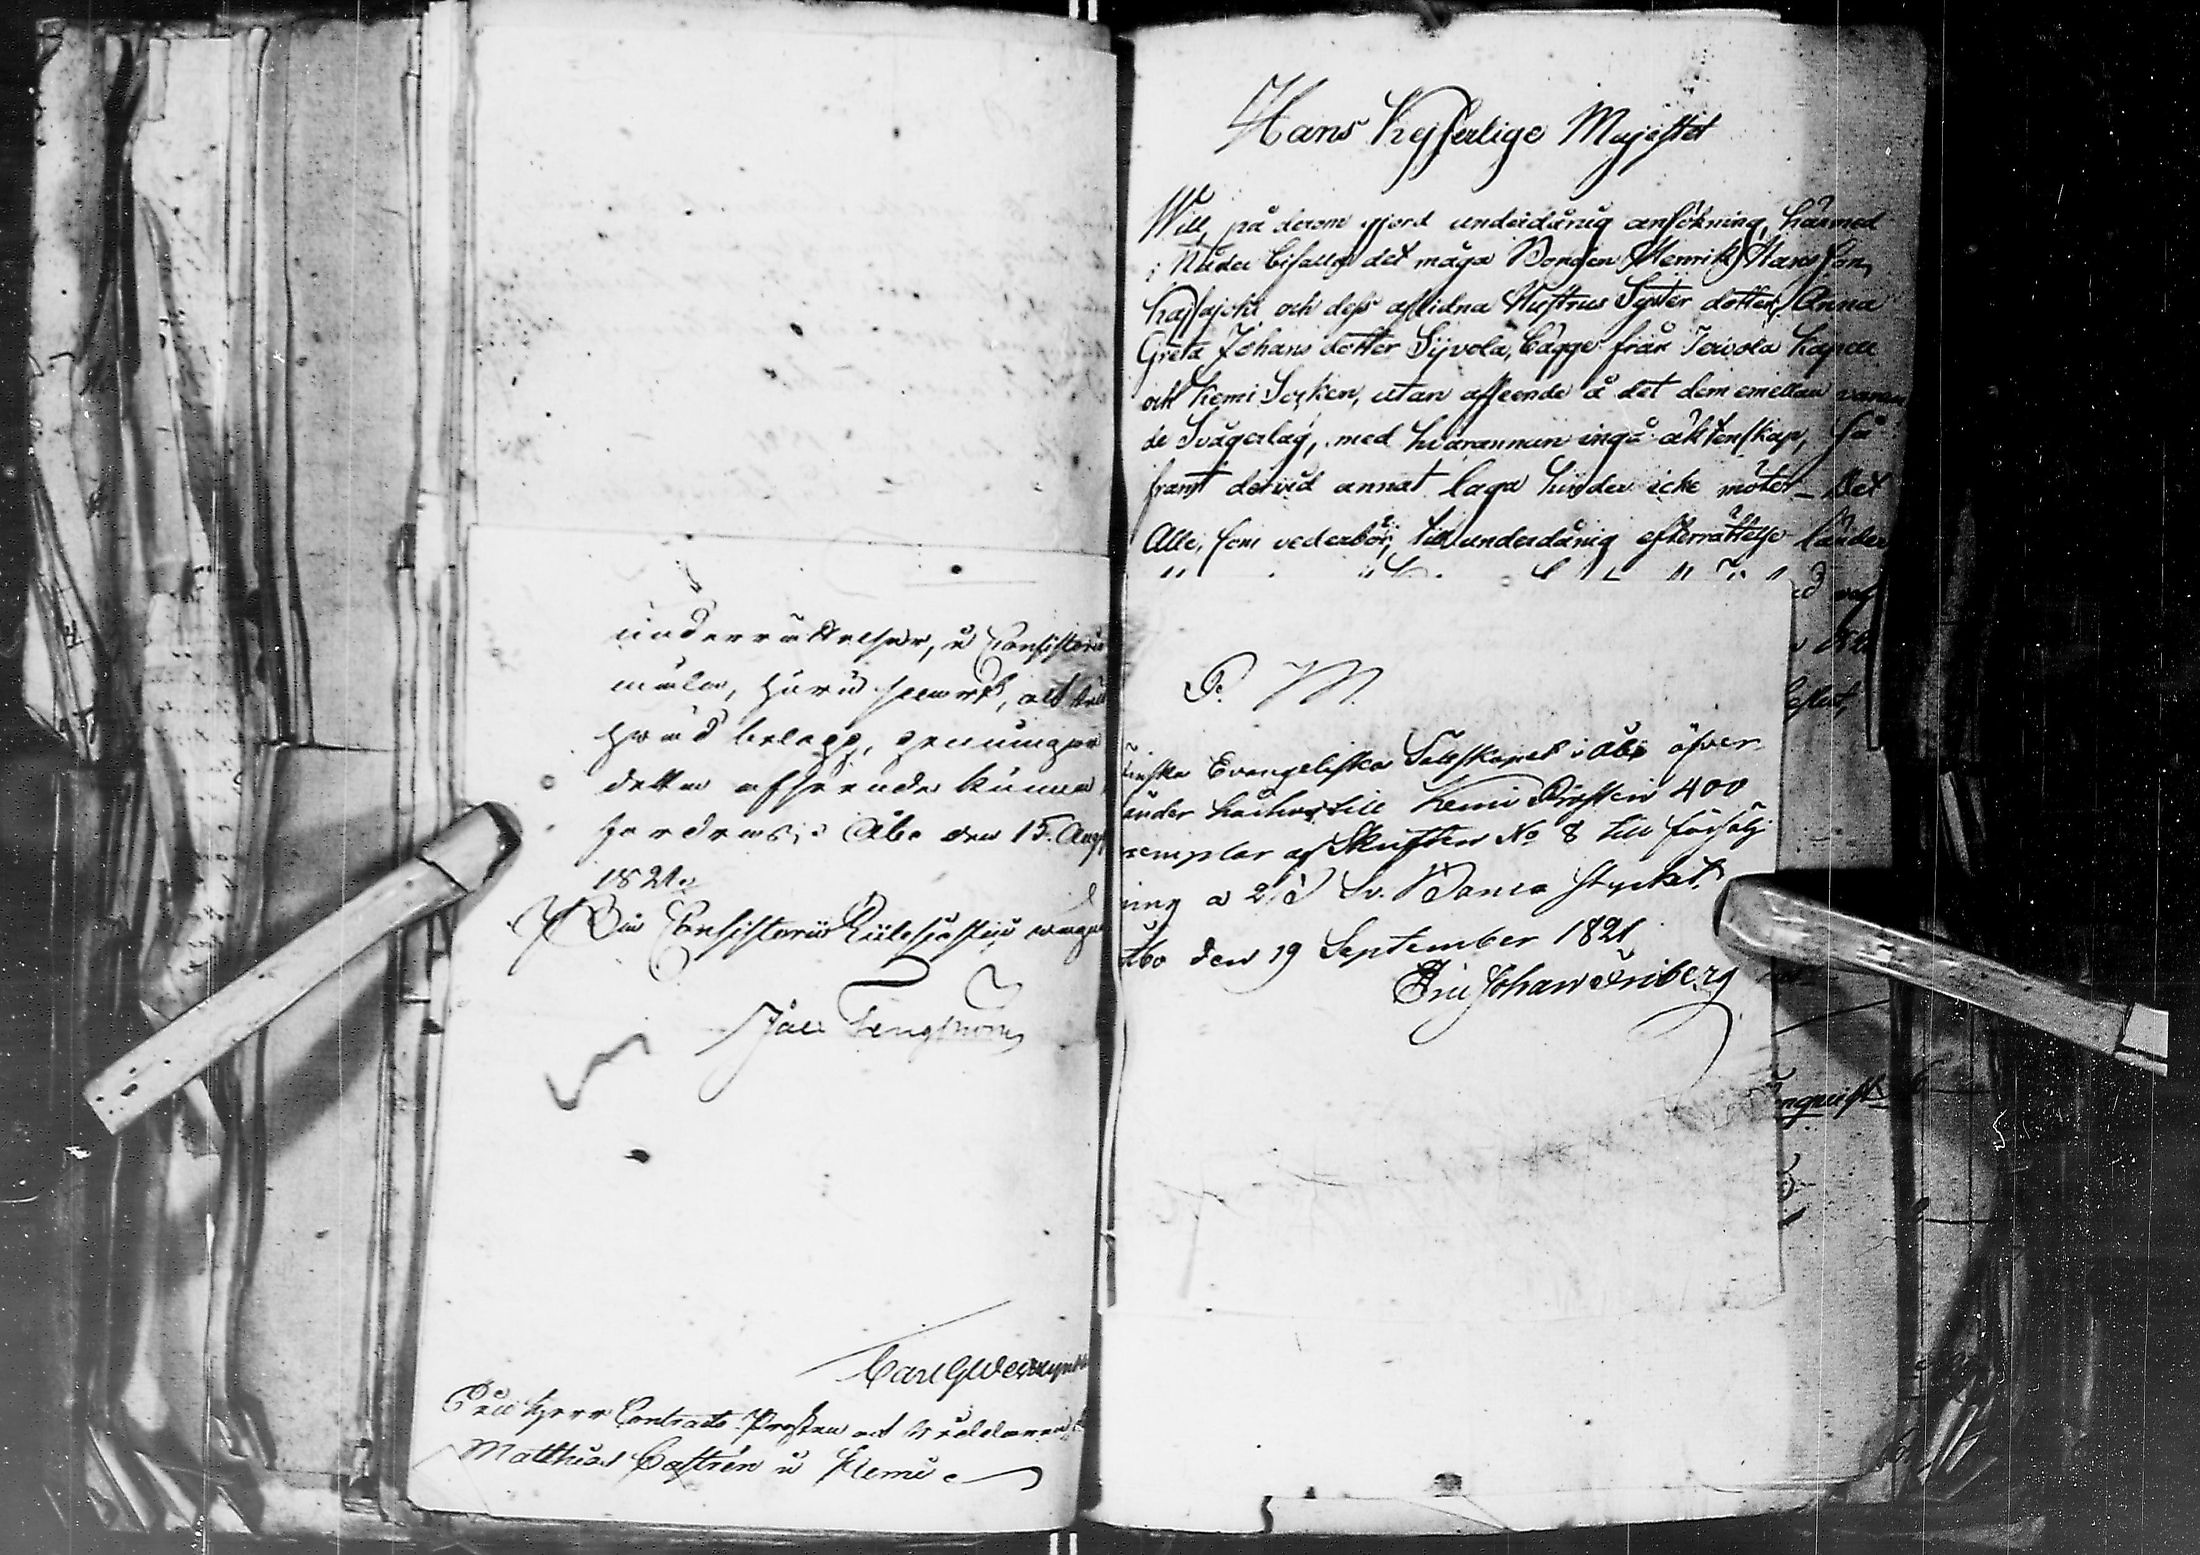 underrättelser, i Consistorii
målen, härå svaret, att
hvad belopp, penningar
detta afseende kunna
fordras; Åbo den 15. Aug
1821.
På Consistorii Ecclesiastici vägnar
Jac: Tengström
Carl G Weckyn
Till Herr Contracts Prosten och Riddaren
Matthias Castrén i Kemi
Hans Kejserlige Majestet
Will, på derom gjord underdånig ansökning, härmed
i Nåder bifalla det måga Bonden Henrik Hansson
Kassajoki och dess aflidna Hustrus Syster dotter, Anna
Greta Johans dotter Sijvola, bägge från Tervola Kapell
och Kemi Socken, utan afseende å det dem emellan varan
de Svågerlag, med hvarannan ingå äktenskap, så
framt dervid annat laga hinder icke möter_ Det
Alle, som vederbör, till underdånig efterrättelse länder
P. M.
inska Evangeliska Sällskapet i Åbo öfver
änder härhos till Kemi Prosteri 400
xemplar af Skriften No 8 till försälj
ning a 2 S Sv. Banco stycket.
Åbo den 19 September 1821
Eric Johan Friberg